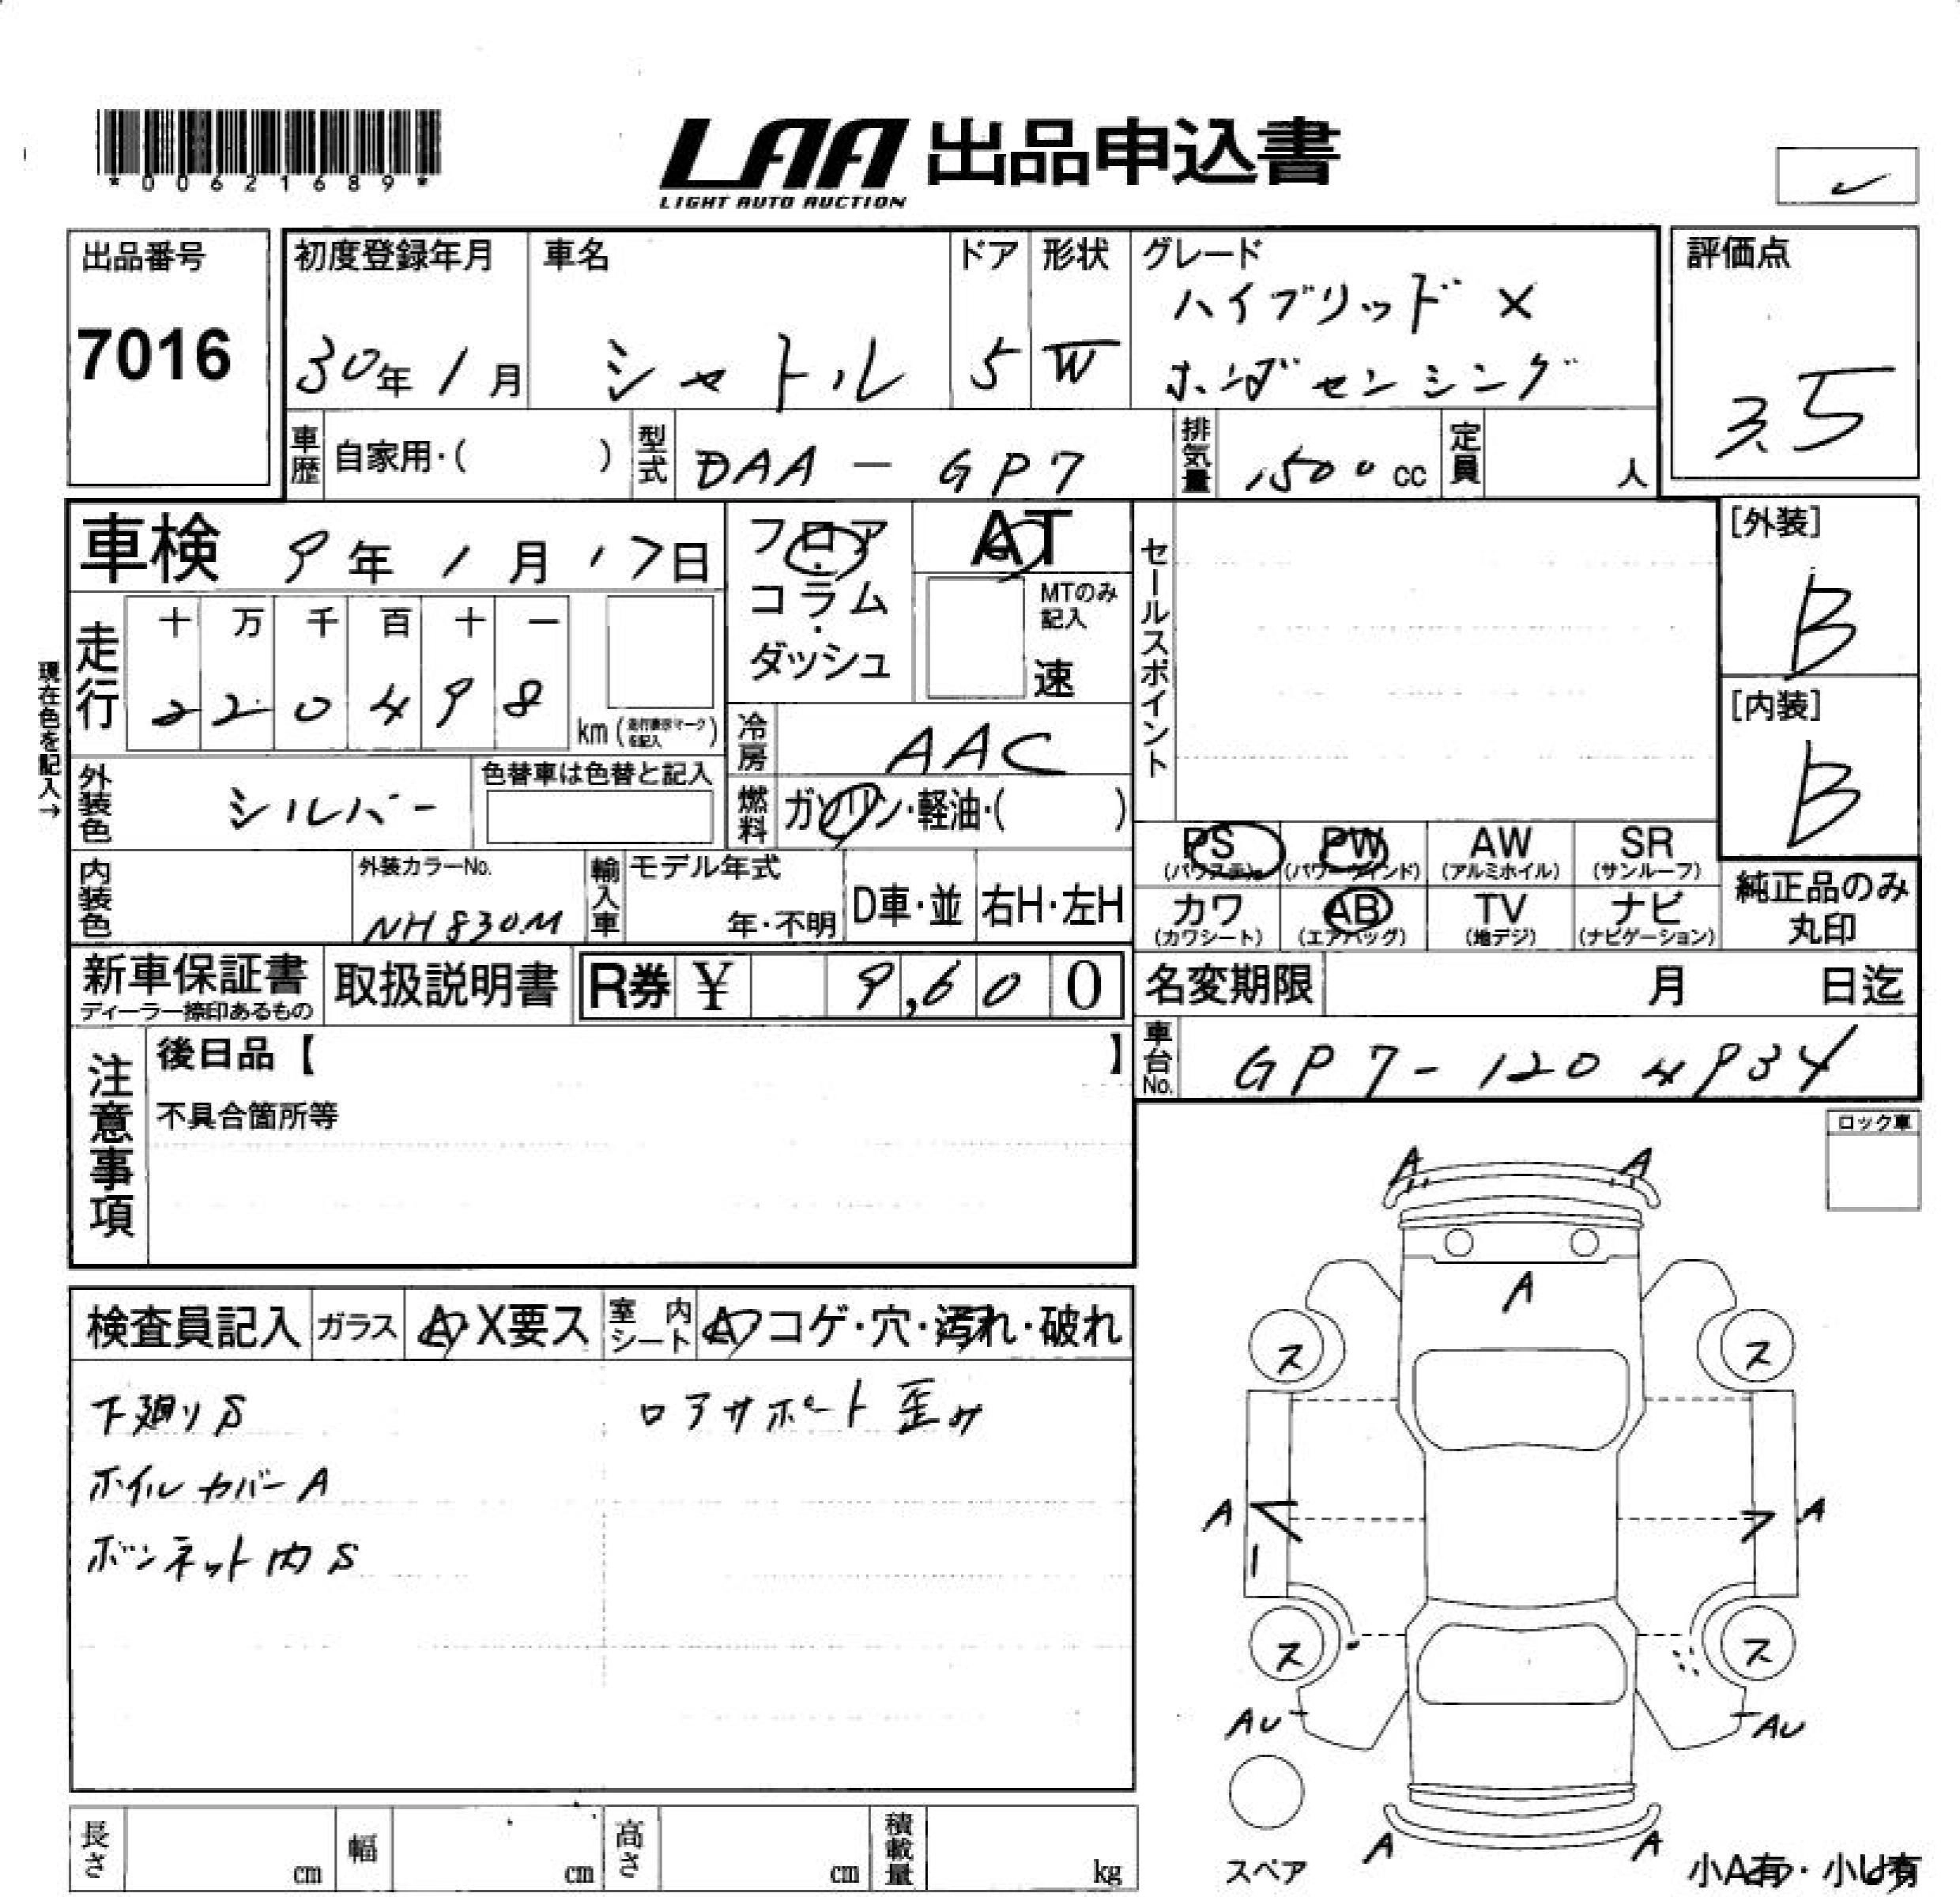 *00621689*
LAA 出品申込書
LIGHT AUTO AUCTION
出品番号
7016
初度登録年月
30年1月
車名
シャトル
ドア
5
形状
W
グレード
ハイブリッド X
ホンダセンシング
評価点
3.5
車歴 自家用・( )
型式 DAA-GP7
排気量 1500cc
定員 人
車検 9年1月17日
フロア・コラム・ダッシュ
AT
MTのみ記入
速
セールスポイント
[外装]
B
[内装]
B
現在色を記入→
走行
十 万 千 百 十 一
2 2 0 4 9 8
km (走行表示マークを記入)
冷房 AAC
外装色 シルバー
色替車は色替と記入
燃料 ガソリン・軽油・( )
PS
(パワステ)
PW
(パワーウインド)
AW
(アルミホイル)
SR
(サンルーフ)
カワ
(カワシート)
AB
(エアバッグ)
TV
(地デジ)
ナビ
(ナビゲーション)
純正品のみ丸印
内装色
外装カラーNo.
NH830M
輸入車
モデル年式
年・不明
D車・並
右H・左H
新車保証書
ディーラー捺印あるもの
取扱説明書
R券 ¥ 9,600
名変期限 月 日迄
注意事項
後日品【 】
不具合箇所等
車台No. GP7-1204934
ロック車
検査員記入
ガラス A・X要ス
室内シート A・コゲ・穴・汚れ・破れ
下廻りS
ロアサポート歪み
ホイルカバーA
ボンネット内S
A A
A
ス ス
A A
ス ス
AU AU
A A
スペア
小A有・小U有
長さ cm
幅 cm
高さ cm
積載量 kg